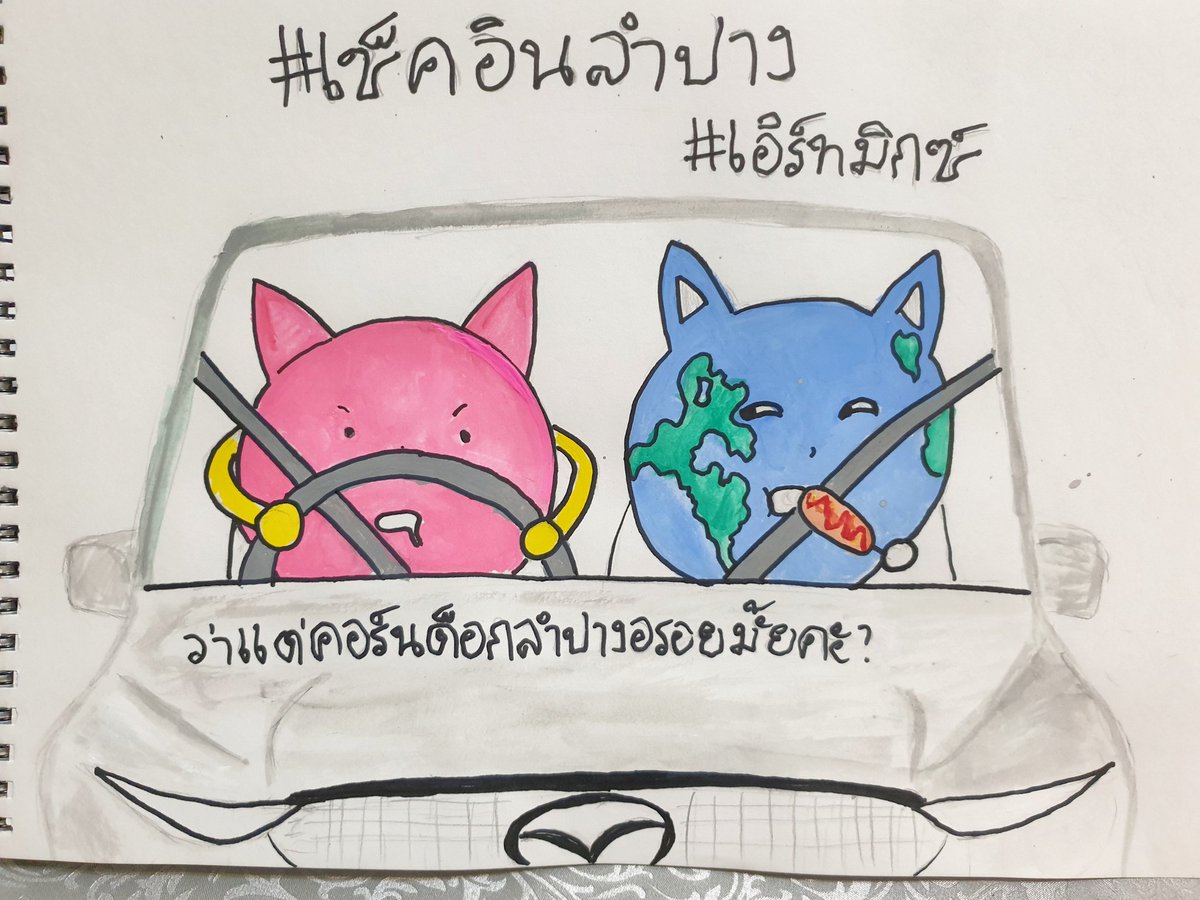 #เช็คอินลำปาง
#เอิร์ทมิกซ์
ว่าแต่คอร์นดือกลำปางอร่อยมั้ยคะ?